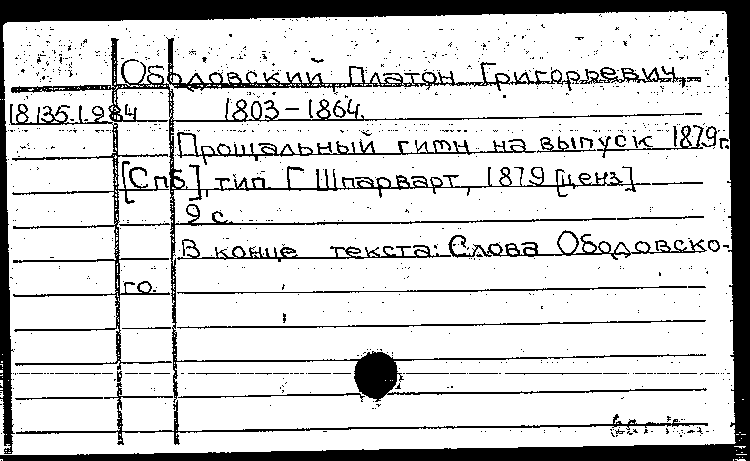 Ободовский, Платон Григорьевич,
18.135.1.984 1803-1864.
Прощальный гимн на выпуск 1879 г.
[Спб], тип. Г Шпарварт, 1879 [ценз]
9 с.
В конце текста: Слова Ободовско-
го.